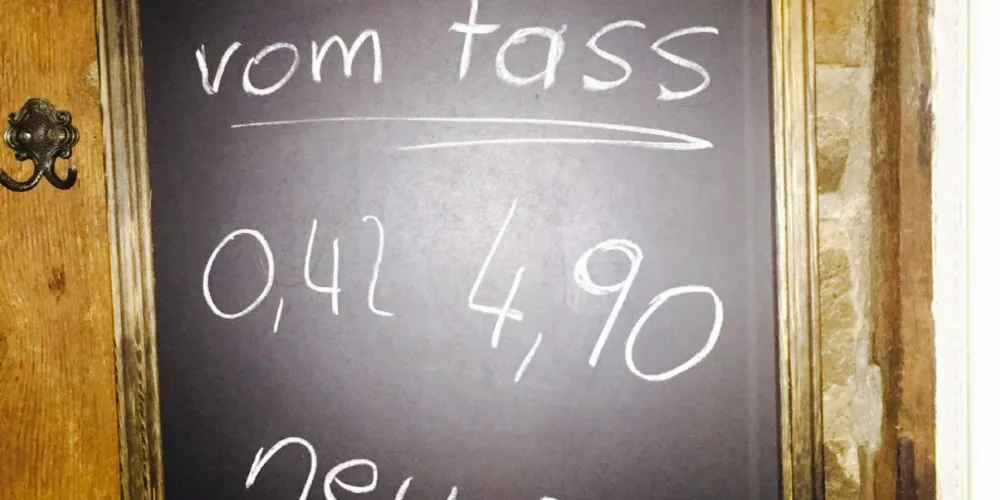 vom Fass
0,4l 4,90